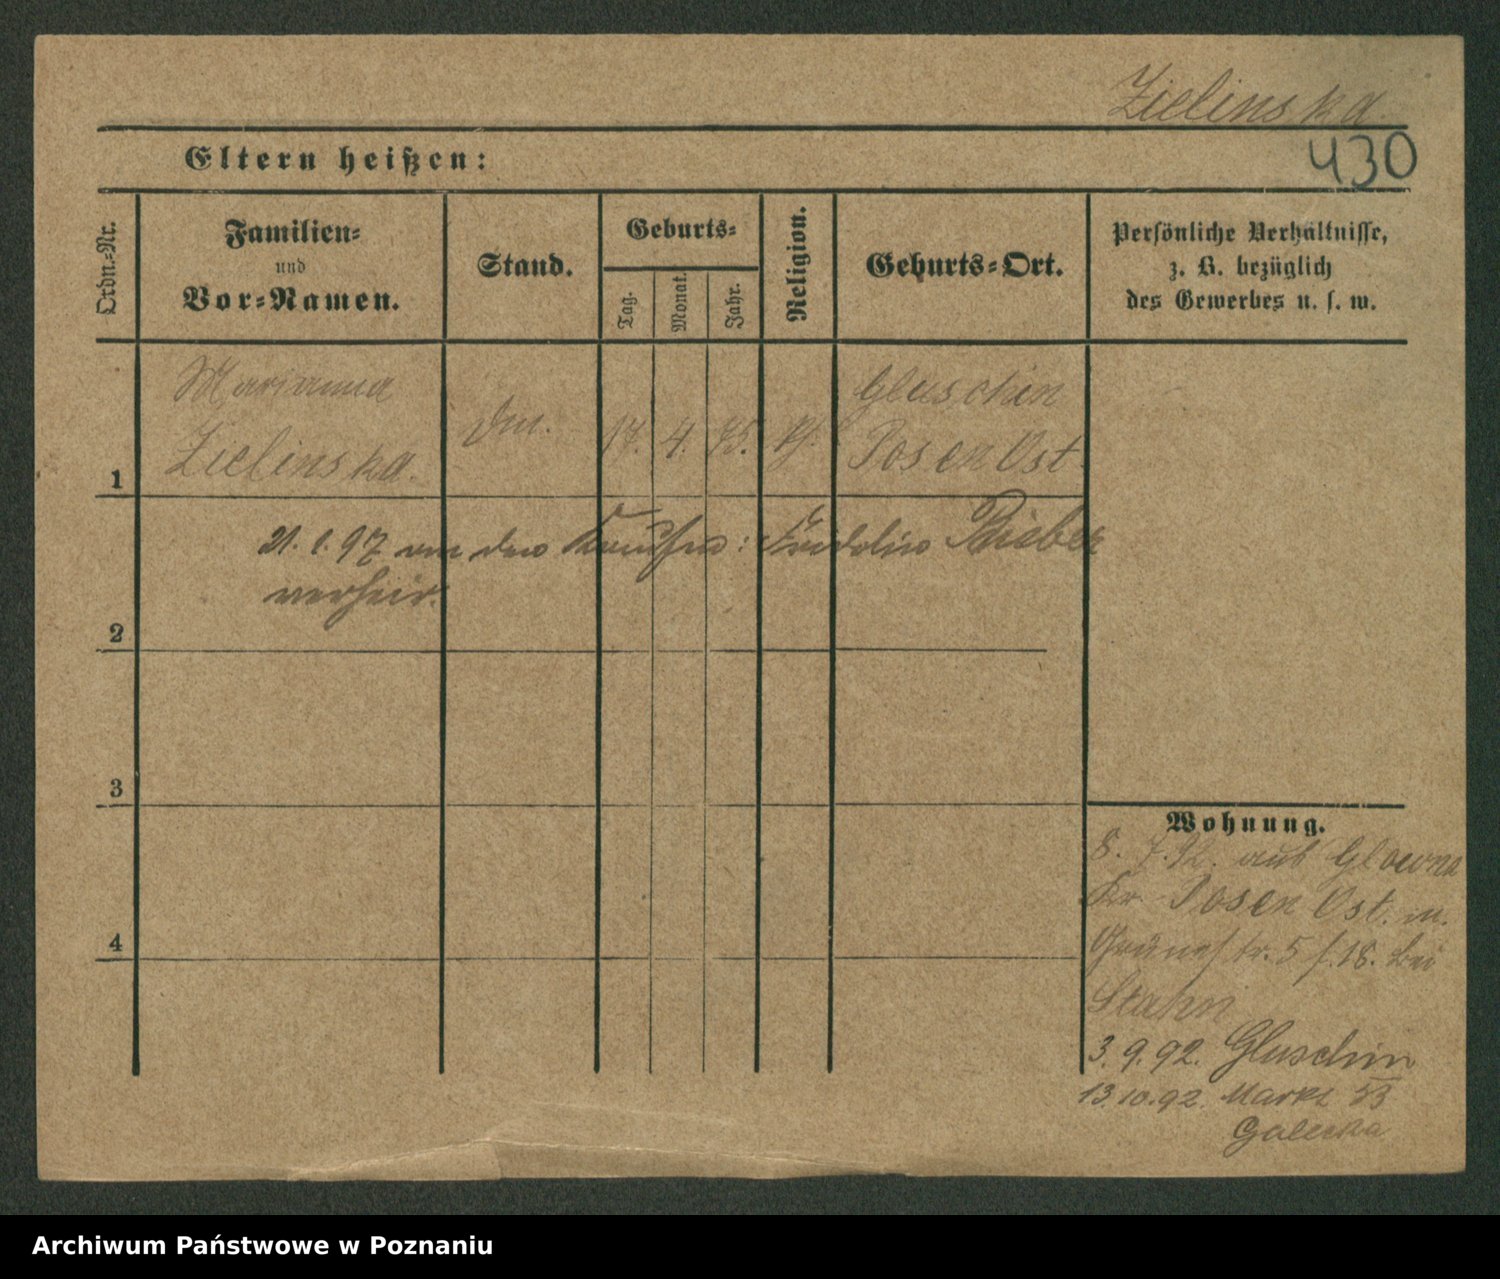 Zielinska.
430
Eltern heißen:
Ordn.-Nr.
Familien-
und
Vor-Namen.
Stand.
Geburts-
Tag.
Monat.
Jahr.
Religion.
Geburts-Ort.
Persönliche Verhältnisse,
z. B. bezüglich
des Gewerbes u. s. w.
1
Marianna
Zielinska.
Dm.
17. 4. 75.
Gluschin
Posen Ost.
21. 1. 97 an den Kaufm: Fridolin
verheir.
2
3
4
Wohnung.
8. 7. 92. aus Glowno
Kr. Posen Ost. in
Grünestr. 5 f. 18. bei
Stahn
3. 9. 92. Gluschin
13. 10. 92. Markt 53
Galecka
Archiwum Państwowe w Poznaniu